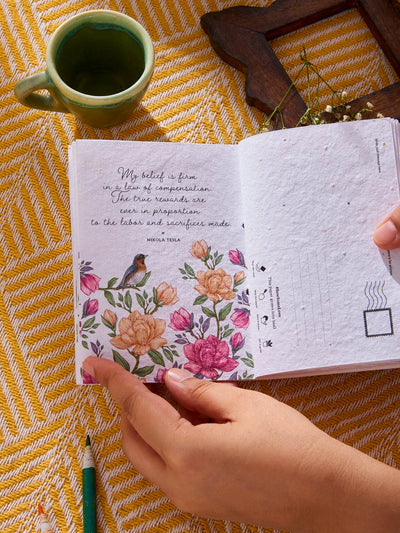 My belief is firm
in a law of compensation.
The true rewards are
ever in proportion
to the labor and sacrifices made.
NIKOLA TESLA